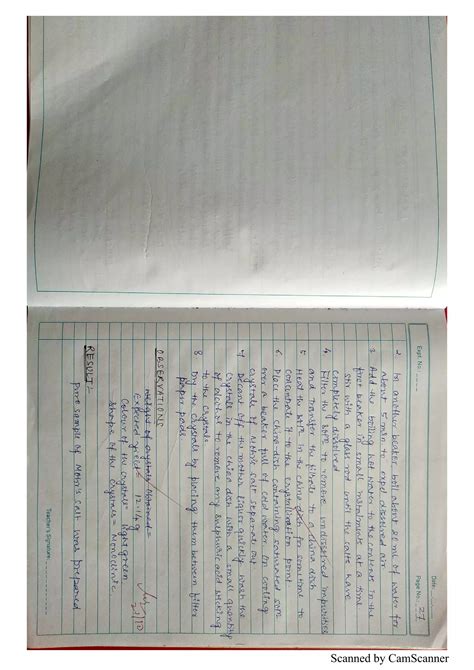 Expt. No.
Date
Page No. 27
2. In another beaker boil about 20 ml of water for
about 5 min to expel dissolved air
3 Add the boiling hot water to the contents in the
first beaker in small instalments at a time
stir with a glass rod until the salts have
completely dissolved
4 Filter the soln to remove undissolved impurities
and transfer the filtrate to a china dish
5 Heat the soln in the china dish for sometime to
concentrate it to the crystallization point
6 Place the china dish containing saturated soln
over a beaker full of cold water on cooling
crystals of Mohr's salt separate out
7 Decant off the mother liquor quickly. Wash the
crystals in the china dish with a small quantity
of alcohol to remove any sulphuric acid sticking
to the crystals
8. Dry the crystals by placing them between filter
paper pads
OBSERVATIONS
Weight of crystals obtained =
Expected yield =
Colour of the crystals = Light green
Shape of the crystals = Monoclinic
RESULT:-
Pure sample of Mohr's salt was prepared
Teacher's Signature
Scanned by CamScanner